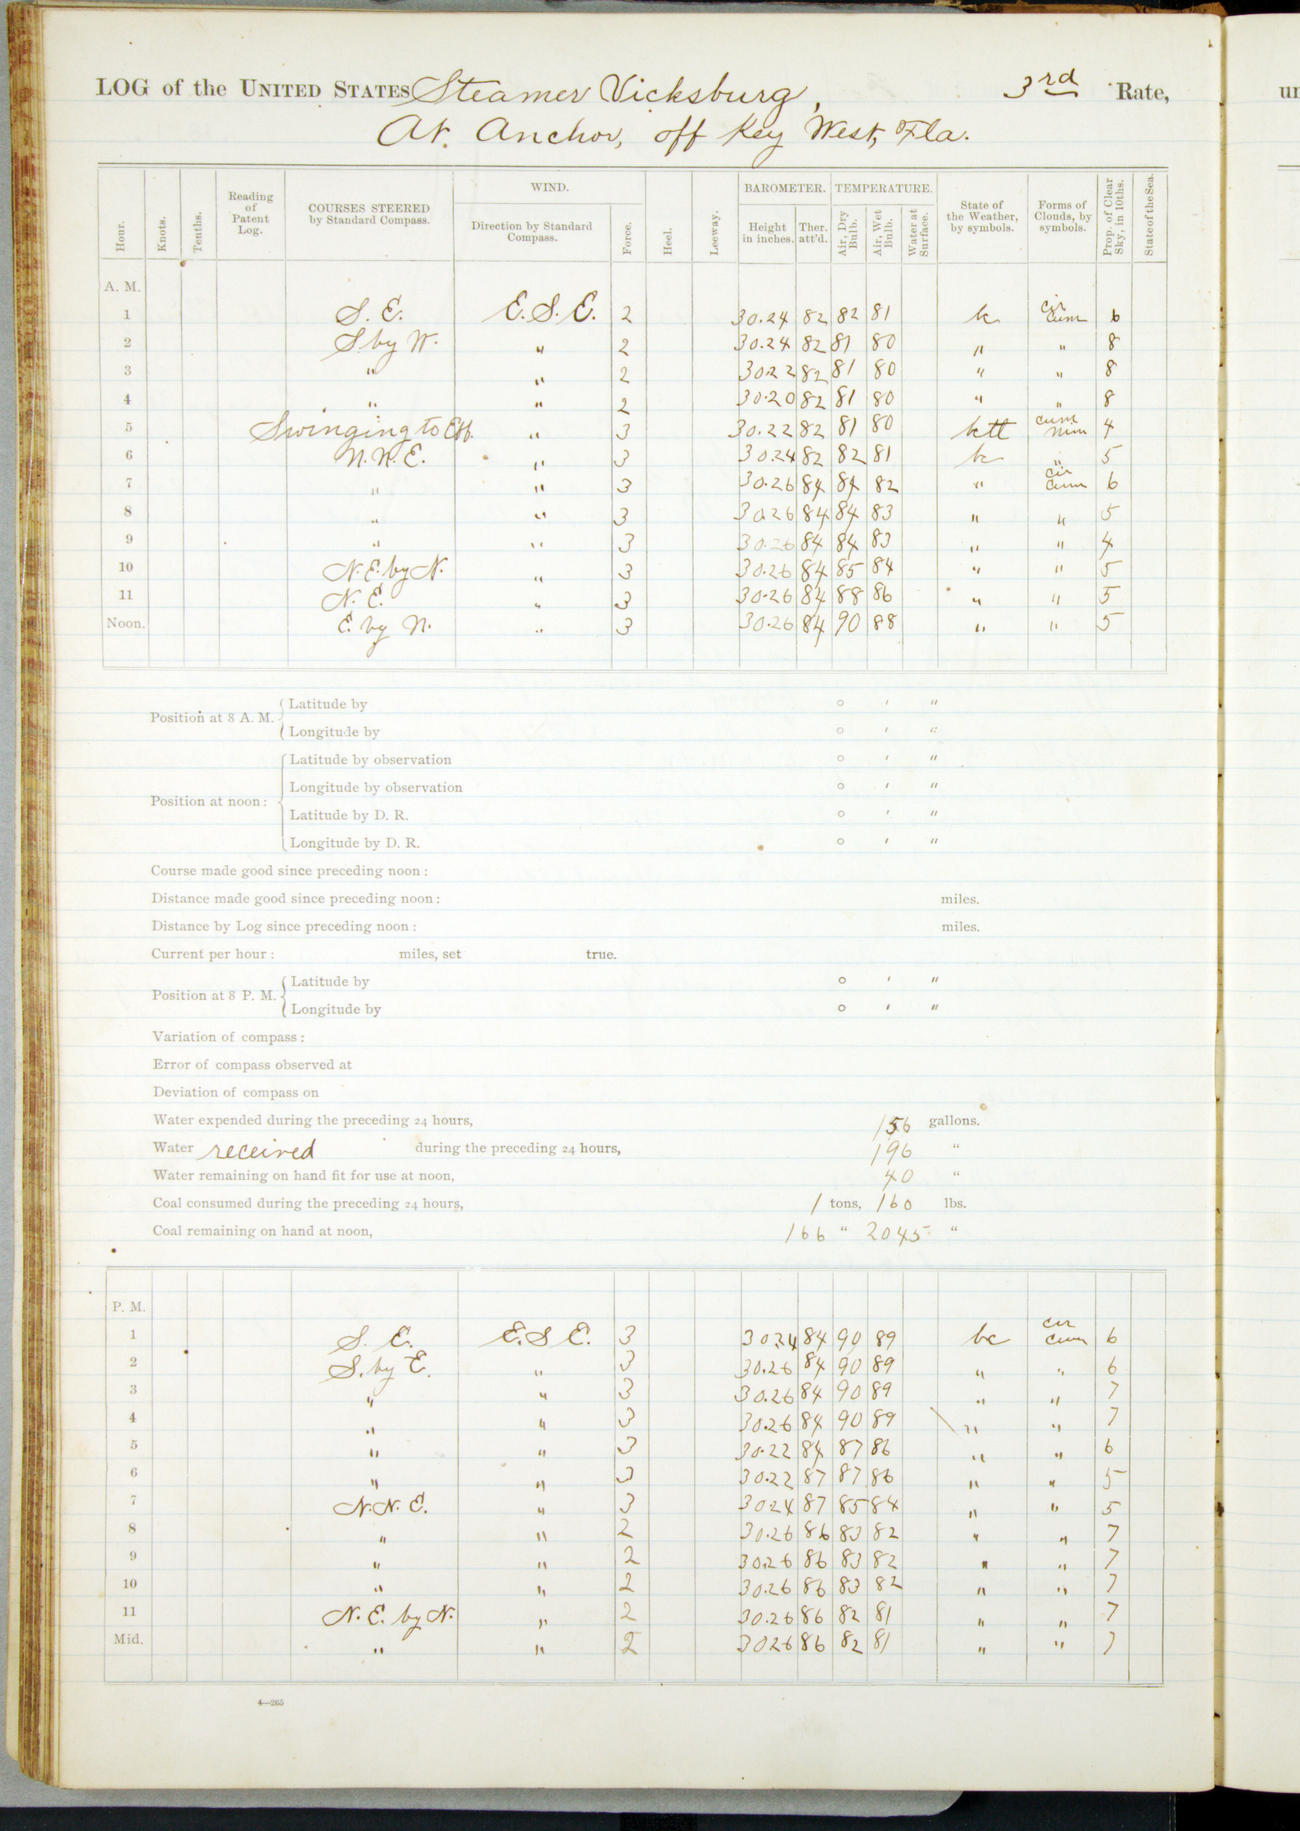 LOG of the UNITED STATES Steamer Vicksburg, 3rd Rate,
At Anchor, off Key West, Fla.
Hour. Knots. Tenths. Reading of Patent Log. COURSES STEERED by Standard Compass. WIND. Direction by Standard Compass. Force. Heel. Leeway. BAROMETER. Height in inches. Ther. att'd. TEMPERATURE. Air, Dry Bulb. Air, Wet Bulb. Water at Surface. State of the Weather, by symbols. Forms of Clouds, by symbols. Prop. of Clear Sky, in 10ths. State of the Sea.
A. M.
1 S. E. E.S.E. 2 30.24 82 82 81 bc cir cum 6
2 S by W. " 2 30.24 82 81 80 " " 8
3 " " 2 30.22 82 81 80 " " 8
4 " " 2 30.20 82 81 80 " " 8
5 Swinging to Ebb. " 3 30.22 82 81 80 bctl cum nim 4
6 N.N.E. " 3 30.24 82 82 81 bc " 5
7 " " 3 30.26 84 84 82 " cir cum 6
8 " " 3 30.26 84 84 83 " " 5
9 " " 3 30.26 84 84 83 " " 4
10 N.E. by N. " 3 30.26 84 85 84 " " 5
11 N. E. " 3 30.26 84 88 86 " " 5
Noon. E. by N. " 3 30.26 84 90 88 " " 5
Position at 8 A. M. Latitude by ° ' "
Longitude by ° ' "
Position at noon: Latitude by observation ° ' "
Longitude by observation ° ' "
Latitude by D. R. ° ' "
Longitude by D. R. ° ' "
Course made good since preceding noon:
Distance made good since preceding noon: miles.
Distance by Log since preceding noon: miles.
Current per hour: miles, set true.
Position at 8 P. M. Latitude by ° ' "
Longitude by ° ' "
Variation of compass:
Error of compass observed at
Deviation of compass on
Water expended during the preceding 24 hours, 156 gallons.
Water received during the preceding 24 hours, 196 "
Water remaining on hand fit for use at noon, 40 "
Coal consumed during the preceding 24 hours, 1 tons, 160 lbs.
Coal remaining on hand at noon, 166 " 2045 "
P. M.
1 S. E. E.S E. 3 30.24 84 90 89 bc cir cum 6
2 S. by E. " 3 30.26 84 90 89 " " 6
3 " " 3 30.26 84 90 89 " " 7
4 " " 3 30.26 84 90 89 " " 7
5 " " 3 30.22 84 87 86 " " 6
6 " " 3 30.22 87 87 86 " " 5
7 N.N. E. " 3 30.24 87 85 84 " " 5
8 " " 2 30.26 86 83 82 " " 7
9 " " 2 30.26 86 83 82 " " 7
10 " " 2 30.26 86 83 82 " " 7
11 N. E. by N. " 2 30.26 86 82 81 " " 7
Mid. " " 2 3026 86 82 81 " " 7
4—265